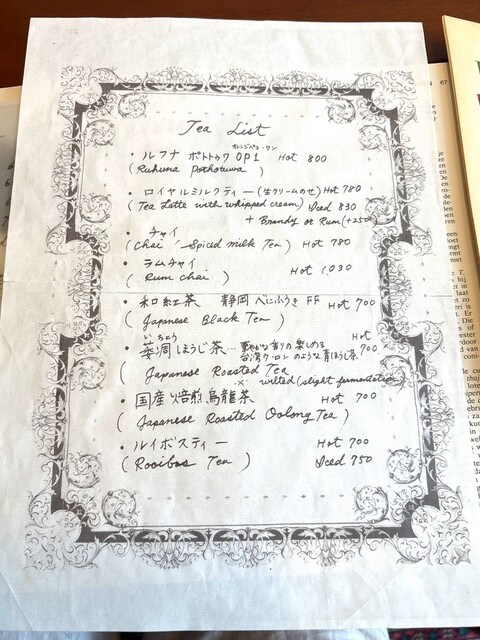 Tea List
オレンジペコ・ワン
・ルフナ ポトトゥワ OP1 Hot 800
(Ruhuna Pothotuwa)
・ロイヤルミルクティー(生クリームのせ) Hot 780
(Tea Latte with whipped cream) Iced 830
+ Brandy or Rum (+250)
・チャイ
(Chai / Spiced milk Tea) Hot 780
・ラムチャイ
(Rum Chai) Hot 1,030
・和紅茶 静岡 べにふうき FF Hot 700
(Japanese Black Tea)
いちょう
・萎凋ほうじ茶… 華やかな香りの楽しめる Hot
台湾ウーロンのような青ほうじ茶 700
(Japanese Roasted Tea
× wilted (slight fermentation)
・国産焙煎烏龍茶 Hot 700
(Japanese Roasted Oolong Tea)
・ルイボスティー Hot 700
(Rooibos Tea) Iced 750
67